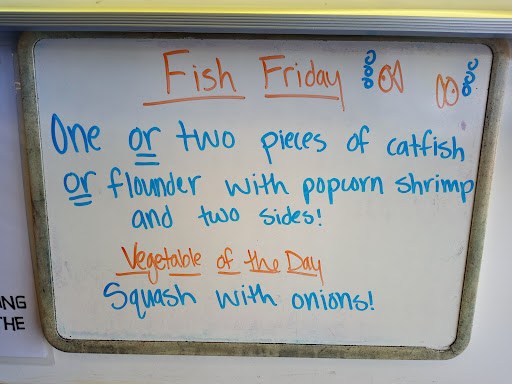 Fish Friday
One or two pieces of catfish
or flounder with popcorn shrimp
and two sides!
Vegetable of the Day
Squash with onions!
NG
THE